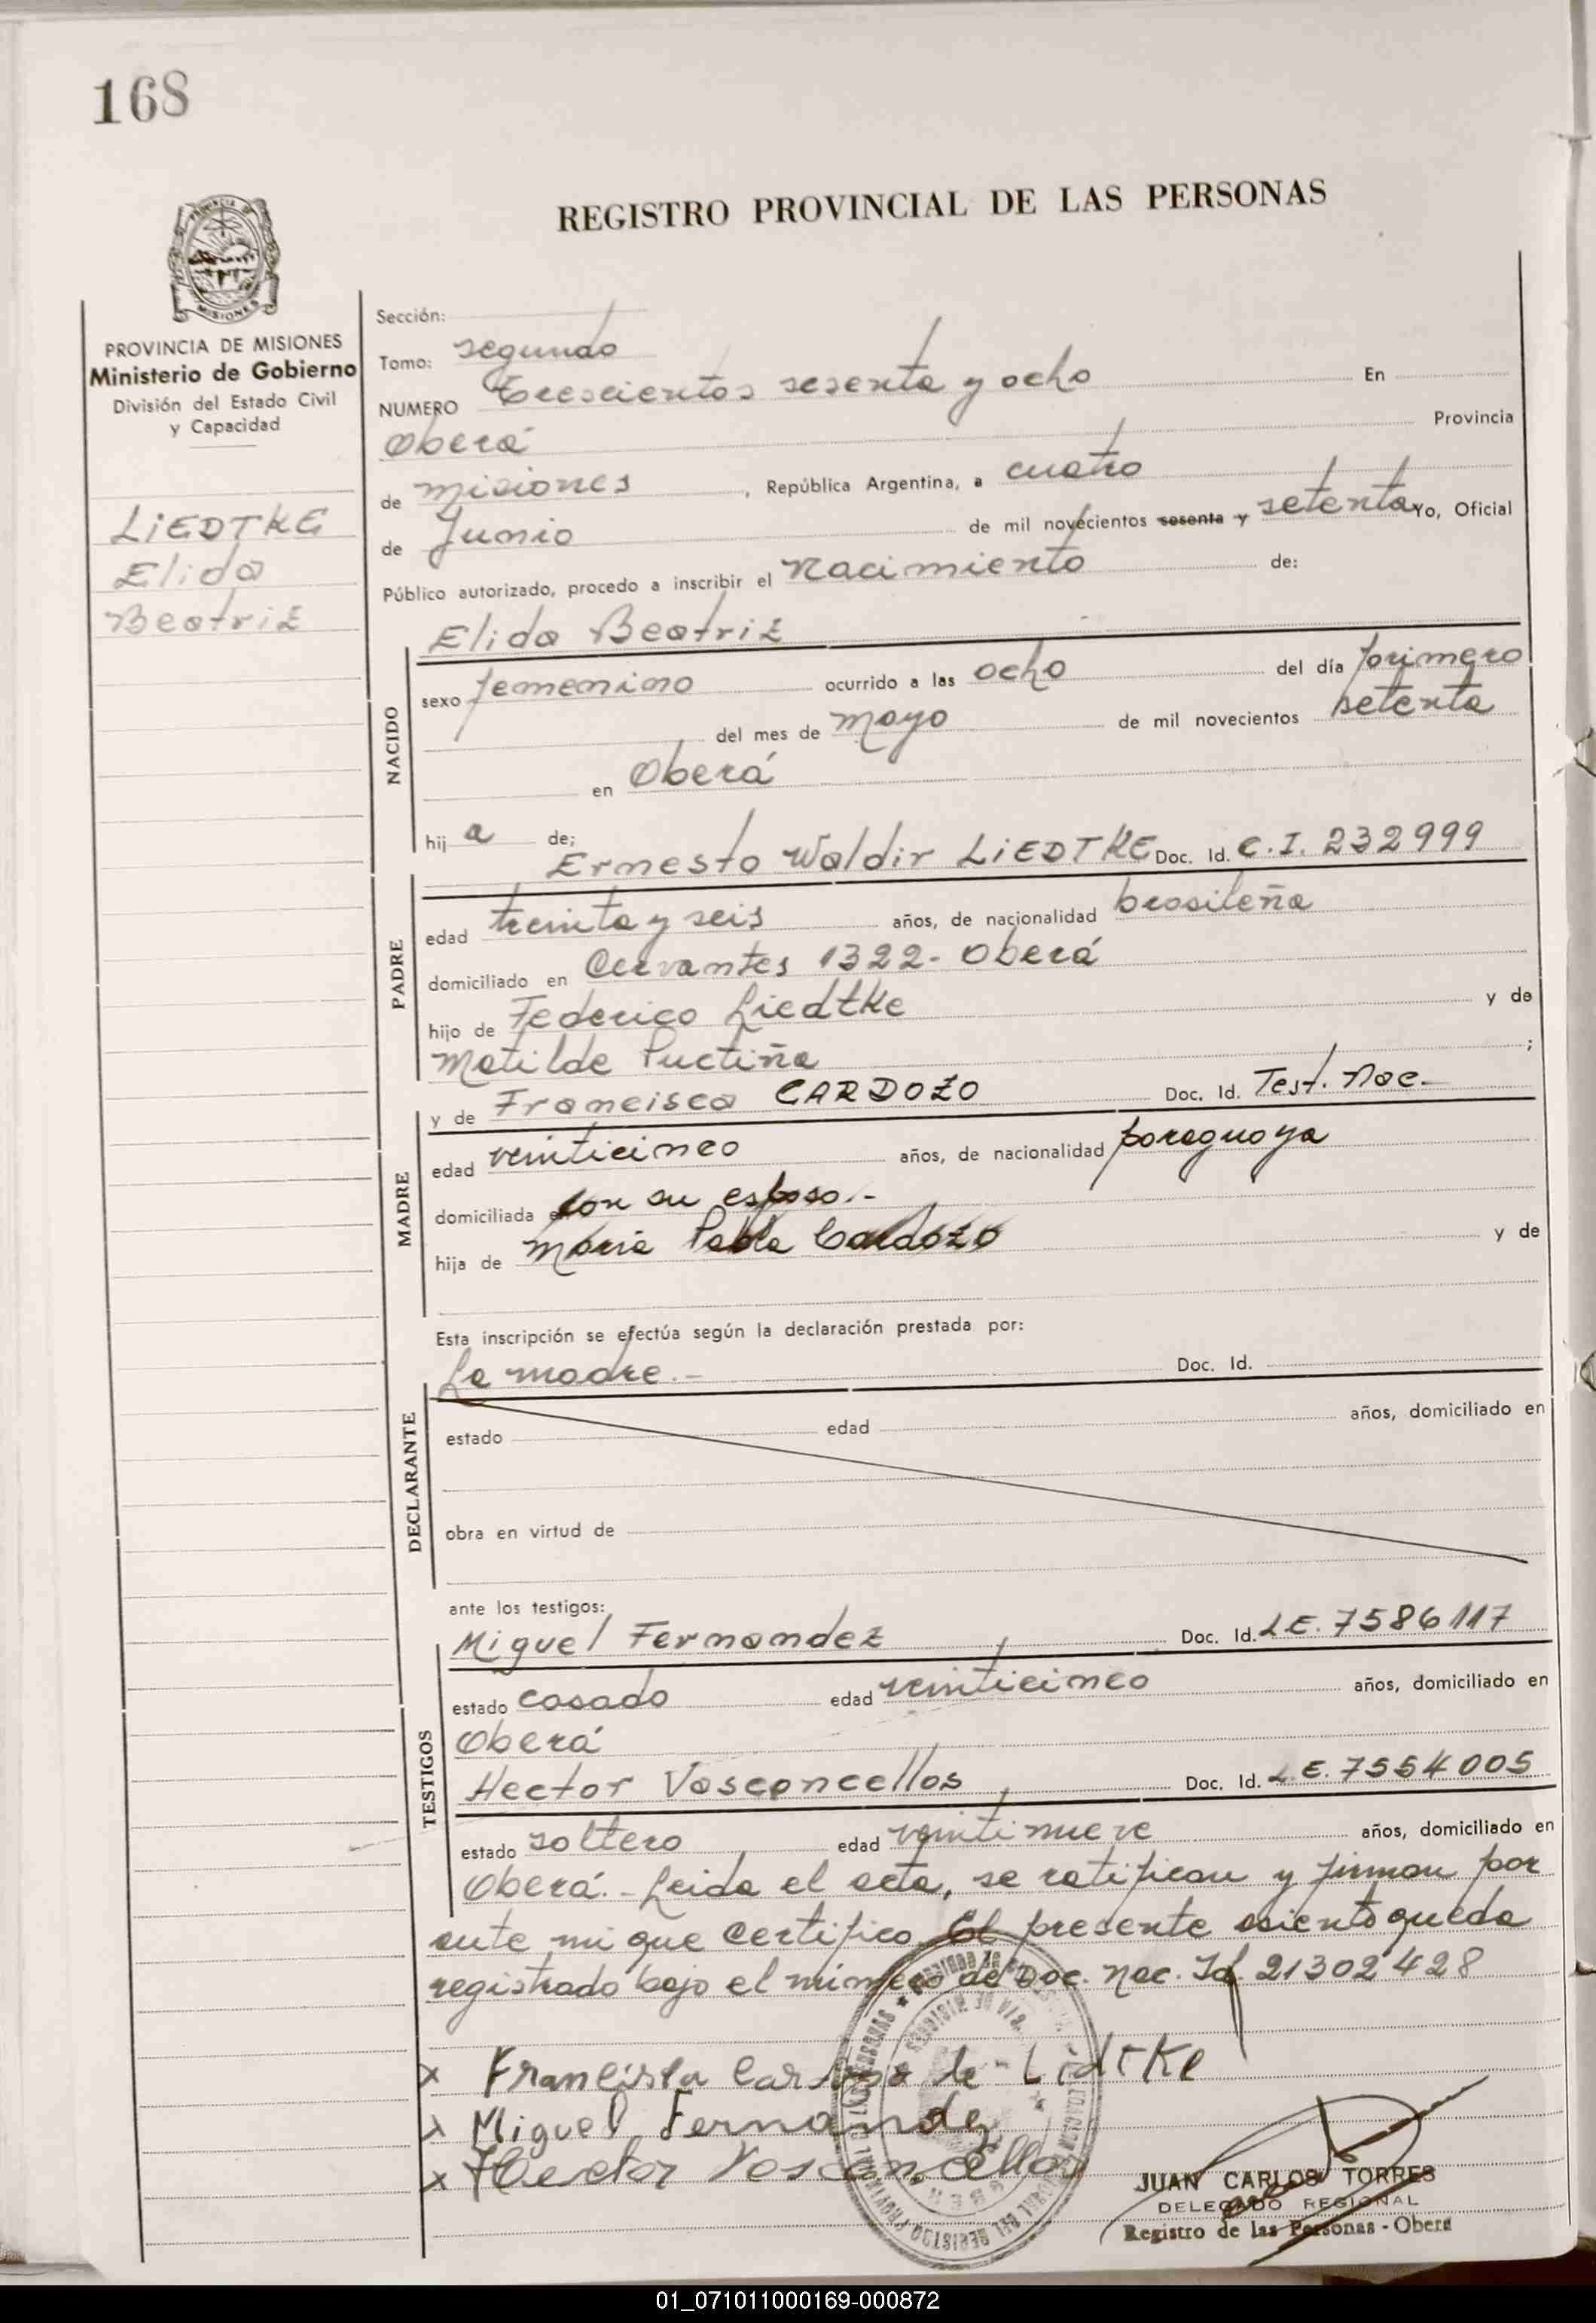 168
REGISTRO PROVINCIAL DE LAS PERSONAS
PROVINCIA DE MISIONES
Ministerio de Gobierno
División del Estado Civil
y Capacidad
LiEDTKE
Elida
Beatriz
Sección:
Tomo: segundo
NUMERO Trescientos sesenta y ocho En
Oberá Provincia
de misiones, República Argentina, a cuatro
de Junio de mil novecientos sesenta y setenta Yo, Oficial
Público autorizado, procedo a inscribir el nacimiento de:
Elida Beatriz
NACIDO
sexo femenino ocurrido a las ocho del día primero
del mes de mayo de mil novecientos setenta
en Oberá
hij a de;
Ernesto Waldir LiEDTKE Doc. Id. C.I. 232999
PADRE
edad treinta y seis años, de nacionalidad brasileña
domiciliado en Cervantes 1322- Oberá
hijo de Federico Liedtke y de
Matilde Puctiña ;
y de Francisca CARDOZO Doc. Id. Test. Nac.
MADRE
edad veinticinco años, de nacionalidad paraguaya
domiciliada con su esposo.-
hija de María Pabla Cardozo y de
Esta inscripción se efectúa según la declaración prestada por:
La madre.- Doc. Id.
DECLARANTE
estado edad años, domiciliado en
obra en virtud de
ante los testigos:
Miguel Fernandez Doc. Id. L.E. 7586117
TESTIGOS
estado casado edad veinticinco años, domiciliado en
Oberá
Hector Vasconcellos Doc. Id. L.E. 7554005
estado soltero edad veintinueve años, domiciliado en
Oberá.- Leida el acta, se ratifican y firman por
ante mi que certifico. El presente asiento queda
registrado bajo el número de Doc. Nac. Id. 21302428
x Francisca Cardozo de Lidtke
x Miguel Fernandez
x Hector Vasconcellos
JUAN CARLOS TORRES
DELEGADO REGIONAL
Registro de las Personas - Oberá
01_071011000169-000872